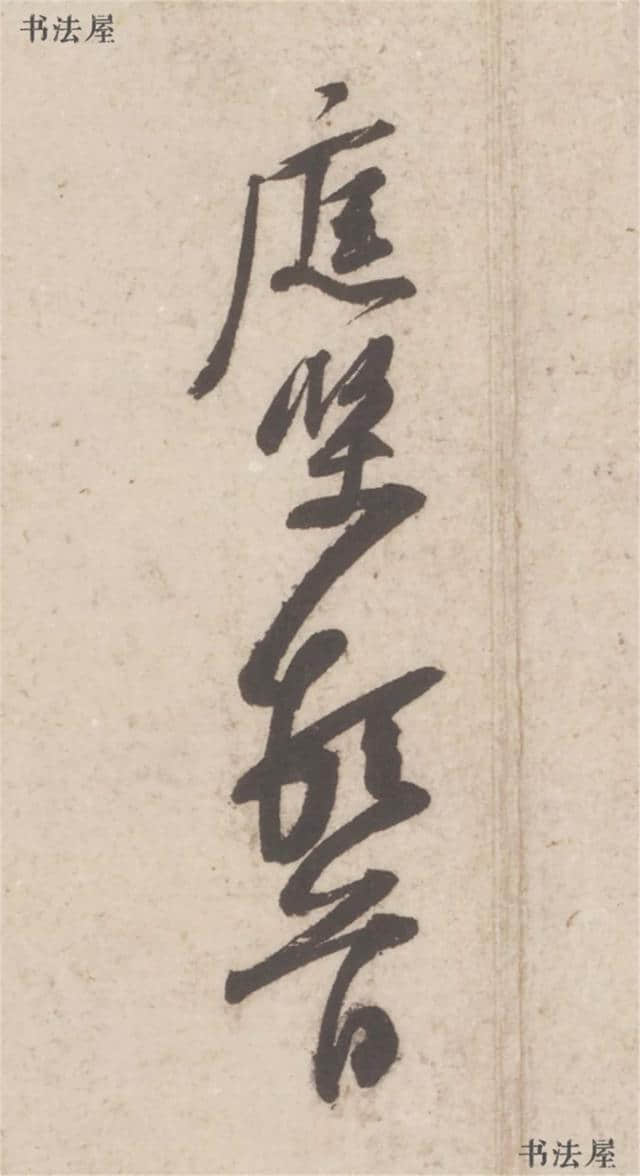 书法屋
庭堅頓首
书法屋